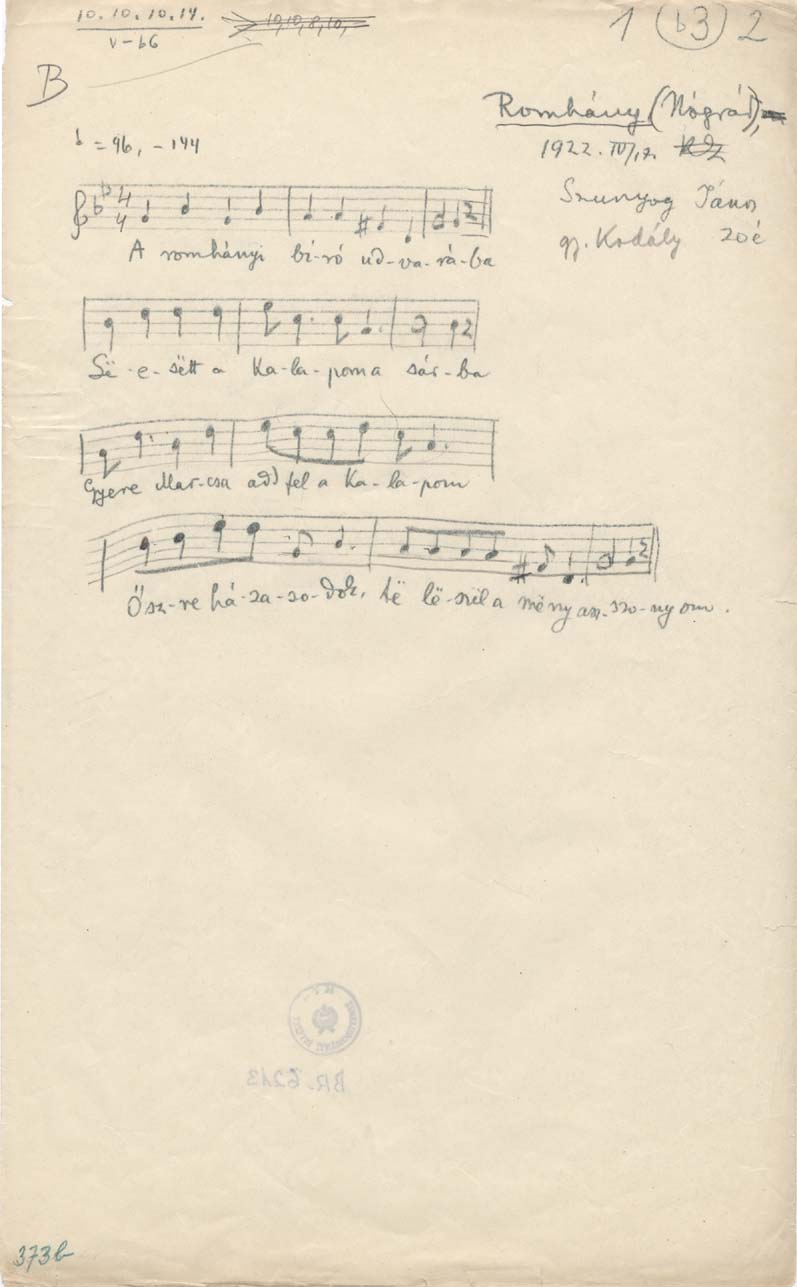 10. 10. 10. 14.
V - b6
10, 10, 8, 10,
1 b3 2
B
Romhány (Nógrád),
= 96, - 144
1922. IV/17.
Szunyog János
gy. Kodály Zoé
4
4
A romhányi bí-ró ud-va-rá-ba
2
Së-e-sëtt a ka-la-poma sár-ba
2
Gyere Mar-csa add fel a ka-la-pom
Ősz-re há-za-so-dok, të lë-szël a mënyasz-szo-nyom.
2
BR. 6213
373b